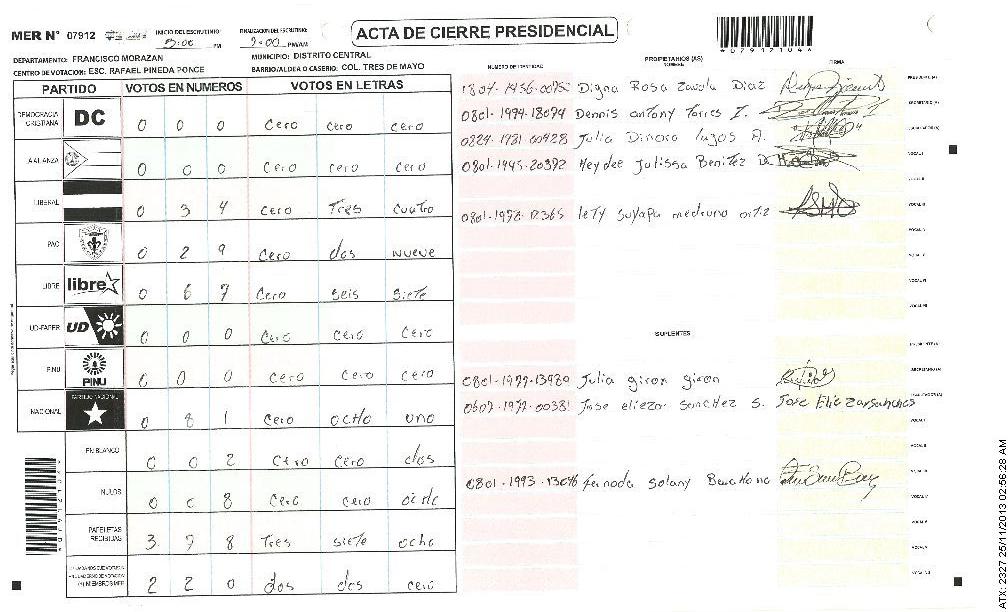 MER N° 07912 INICIO DEL ESCRUTINIO: 5:00 PM FINALIZACION DEL ESCRUTINIO: 7:00 PM/AM ACTA DE CIERRE PRESIDENCIAL *079121044*
DEPARTAMENTO: FRANCISCO MORAZAN MUNICIPIO: DISTRITO CENTRAL
CENTRO DE VOTACION: ESC. RAFAEL PINEDA PONCE BARRIO/ALDEA O CASERIO: COL. TRES DE MAYO
PARTIDO VOTOS EN NUMEROS VOTOS EN LETRAS
DEMOCRACIA CRISTIANA DC 0 0 0 cero cero cero
ALIANZA 0 0 0 cero cero cero
LIBERAL 0 3 4 cero Tres cuatro
PAC 0 2 9 cero dos nueve
LIBRE libre 0 6 7 cero seis siete
UD-FAPER UD 0 0 0 cero cero cero
PINU PINU 0 0 0 cero cero cero
NACIONAL PARTIDO NACIONAL 0 8 1 cero ocho uno
EN BLANCO 0 0 2 cero cero dos
NULOS 0 0 8 cero cero ocho
PAPELETAS RECIBIDAS 3 7 8 Tres siete ocho
2 2 0 dos dos cero
NUMERO DE IDENTIDAD PROPIETARIOS (AS) NOMBRE FIRMA
Digna Rosa Zavala Diaz PRESIDENTE (A)
0801-1974-18094 Dennis antony Torres Z. SECRETARIO (A)
0824-1981-00928 Julia Dinora lagos A.
0801-1945-20372 Heydee Julissa Benitez VOCAL I
VOCAL II
lety suyapa medrano ortiz VOCAL III
VOCAL IV
VOCAL V
VOCAL VI
VOCAL VII
SUPLENTES
0801-1977-13980 Julia giron giron SECRETARIO (A)
0607-1972-00381 Jose eliezar Sanchez S. Jose Eliezar Sanches
VOCAL I
VOCAL II
0801-1993-13096 solany
VOCAL IV
VOCAL V
ATX: 2327 25/11/2013 02:56:28 AM